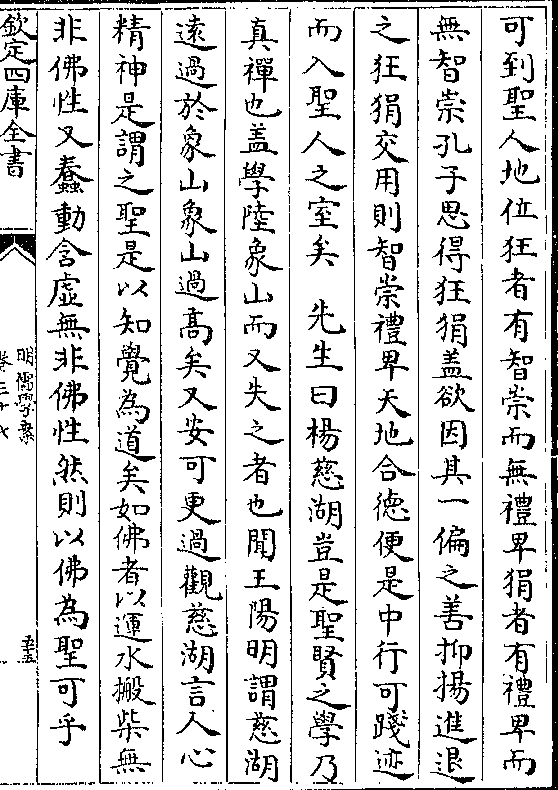 可到聖人地位狂者有智崇而無禮卑狷者有禮卑而
無智崇孔子思得狂狷盖欲因其一偏之善抑揚進退
之狂狷交用則智崇禮卑天地合德便是中行可踐迹
而入聖人之室矣　先生曰楊慈湖豈是聖賢之學乃
真禪也盖學陸象山而又失之者也聞王陽明謂慈湖
遠過於象山象山過髙矣又安可更過觀慈湖言人心
精神是謂之聖是以知覺為道矣如佛者以運水搬柴無
非佛性又蠢動含虛無非佛性然則以佛為聖可乎
欽定四庫全書
明儒學案
卷三十七